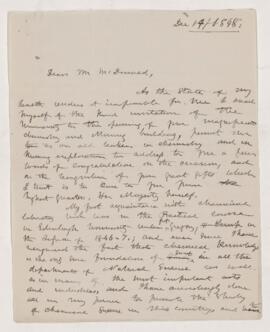 Dec 14/1898.
Dear Mr McDonald,
As the state of my
health renders it impossible for me to avail
myself of the kind invitation of the
University to the opening of your magnificent
chemistry and Mining building, permit me
as an old worker in chemistry and in
Mining exploration to address to you a few
words of congratulation on the occasion, and
on the completion of your great gifts which
I trust is to
highest
My first acquaintance with chemical
laboratory work was in the Practical course
in Edinburgh University under Gregory
in the 1846-7; and ever since I have
recognized the fact that chemical knowledge
is the only sure foundation of work in all the
departments of Natural Science as well
as in many of the most important arts
and industries and I have accordingly done
all in my power to promote the study
of chemical science in this country and